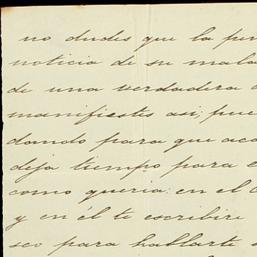 no dudes que la pe
noticia de su mala
de una verdadera
manifiestes asi, pue
dando para que aca
deja tiempo para e
como queria: en el C
y en él te escribiré
seo para hablarte